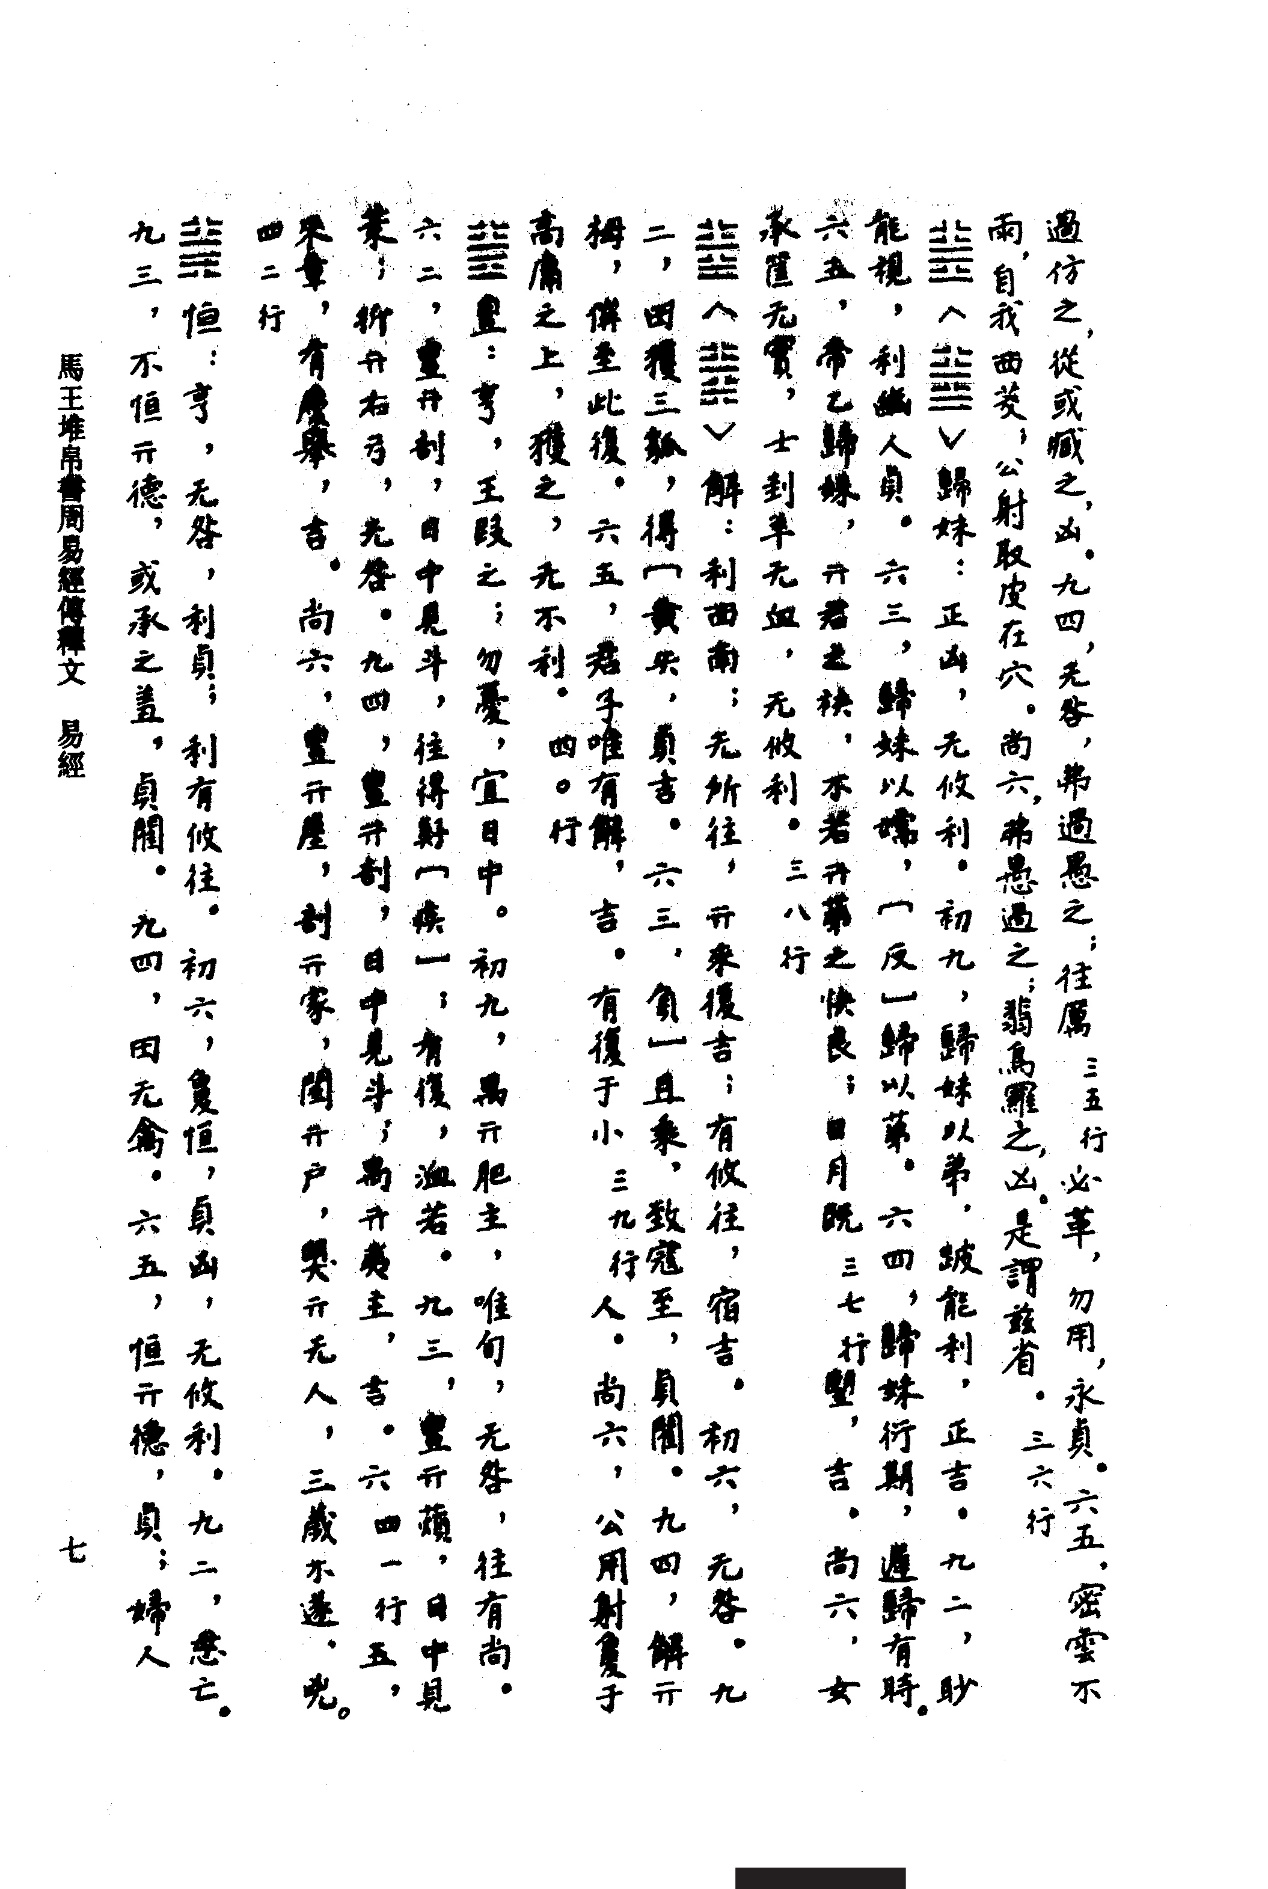 過仿之，從或臧之，凶。九四，无咎，弗過愚之；往厲三五行必革，勿用，永貞。六五，密雲不
雨，自我西茭；公射取皮在穴。尚六，弗愚過之；翡鳥羅之，凶。是謂茲省。三六行
䷵〈䷵〉歸妹：正凶，无攸利。初九，歸妹以弟，跛能利，正吉。九二，眇
能視，利幽人貞。六三，歸妹以嬬，〔反〕歸以苐。六四，歸妹衍期，遲歸有時。
六五，帝乙歸妹，亓君之袂，不若亓苐之快良；日月既三七行朢，吉。尚六，女
承筐无實，士刲羊无血，无攸利。三八行
䷧〈䷧〉解：利西南；无所往，亓來復吉；有攸往，宿吉。初六，无咎。九
二，田獲三狐，得〔黃矢，貞吉。六三，負〕且乘，致寇至，貞閵。九四，解亓
栂，傰至此復。六五，君子唯有解，吉。有復于小三九行人。尚六，公用射夐于
高庸之上，獲之，无不利。四〇行
䷶豐：亨，王叚之；勿憂，宜日中。初九，禺亓肥主，唯旬，无咎，往有尚。
六二，豐亓剖，日中見斗，往得疑〔疾〕；有復，洫若。九三，豐亓蘋，日中見
茉；折亓右弓，无咎。九四，豐亓剖，日中見斗；禺亓夷主，吉。六四一行五，
來章，有慶舉，吉。尚六，豐亓屋，剖亓家，閨亓戶，𡙇亓无人，三歲不遂，兇。
四二行
䷟恒：亨，无咎，利貞；利有攸往。初六，夐恒，貞凶，无攸利。九二，悬亡。
九三，不恒亓德，或承之羞，貞閵。九四，田无禽。六五，恒亓德，貞；婦人
馬王堆帛書周易經傳釋文　易經
七